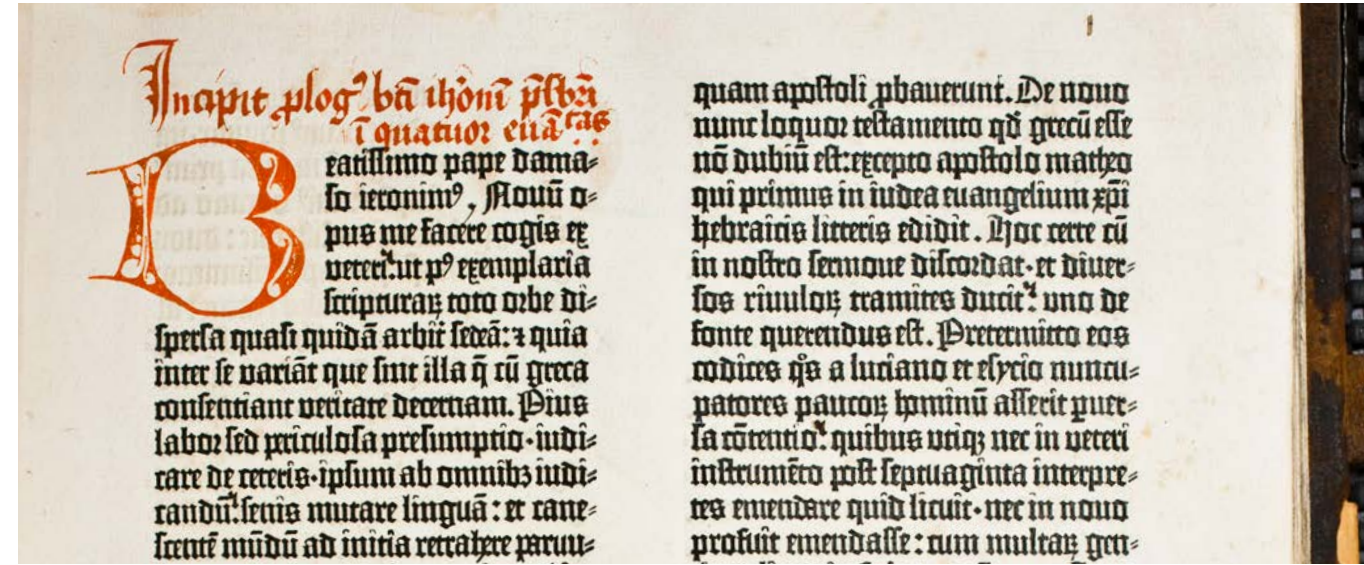 Incipit ꝓlogꝰ bti ihõni p̃sbr̃i
ĩ quatuor euãtas
Beatissimo pape dama⸗
so ieronimꝰ. Nouũ o⸗
pus me facere cogis ex
veteri: ut pꝰ exemplaria
scripturaꝝ toto orbe di⸗
spersa quasi quidã arbit̃ sedeã: ⁊ quia
inter se variãt que sint illa q̃ cũ greca
consentiant veritate decernam. Pius
labor sed periculosa presumptio · iudi⸗
care de ceteris · ipsum ab omnibꝫ iudi⸗
candũ: senis mutare linguã: et cane⸗
scentẽ mũdũ ad initia retrahere paruu⸗
quam apostoli ꝓbauerunt. De nouo
nunc loquor testamento qđ grecũ esse
nõ dubiũ est: excepto apostolo matheo
qui primus in iudea euangelium xp̃i
hebraicis litteris edidit. Hoc certe cũ
in nostro sermone discordat · et diuer⸗
sos riuuloꝝ tramites ducit: uno de
fonte querendus est. Pretermitto eos
codices q̊s a luciano et esycio nuncu⸗
patores paucoꝝ hominũ asserit puer⸗
sa cõtentio: quibus vtiqꝫ nec in veteri
instrumẽto post septuaginta interpre⸗
tes emendare quid licuit · nec in nouo
profuit emendasse: cum multaꝝ gen⸗